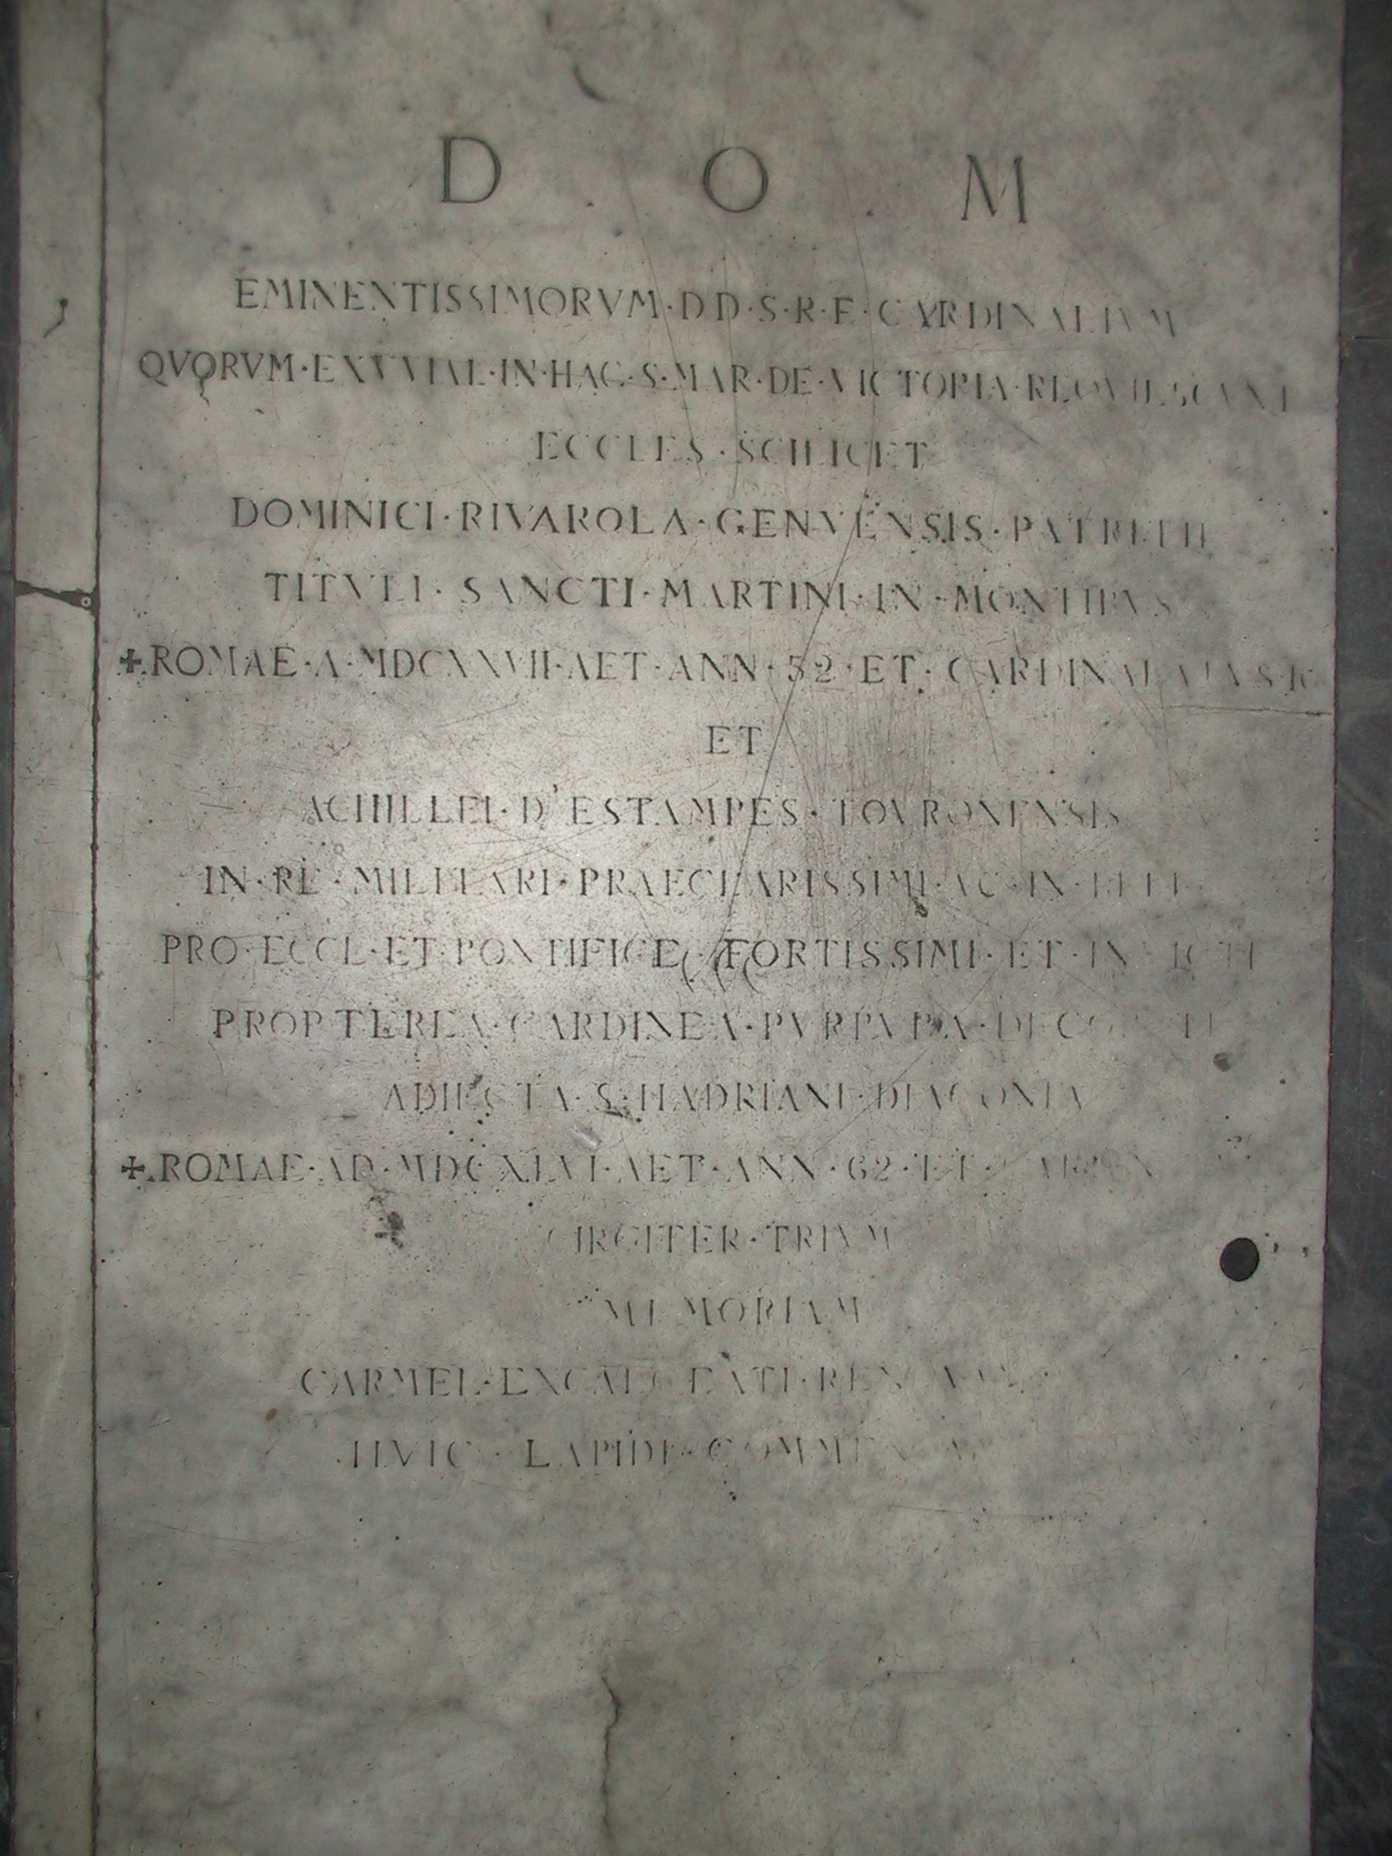 D O M
EMINENTISSIMORVM·DD·S·R·E·CARDINALIVM
QVORVM·EXVVIAE·IN·HAC·S·MAR·DE·VICTORIA·REQVIESCVNT
ECCLES·SCILICET
DOMINICI·RIVAROLA·GENVENSIS·PATRITII
TITVLI·SANCTI·MARTINI·IN·MONTIBVS
✠ROMAE·A·MDCXXVII·AET·ANN·52·ET·CARDINALATVS
ET
ACHILLEI·D'ESTAMPES·TOVRONENSIS
IN·RE·MILITARI·PRAECLARISSIMI·AC·IN
PRO·ECCL·ET·PONTIFICE·FORTISSIMI·ET·INVICTI
PROPTEREA·CARDINEA·PVRPVRA
ADIECTA·S·HADRIANI·DIACONIA
✠ROMAE·AD·MDCXLVI·AET·ANN·62·ET
CIRCITER·TRIVM
MEMORIAM
CARMEL·EXCALCEATI
HVIC·LAPIDE